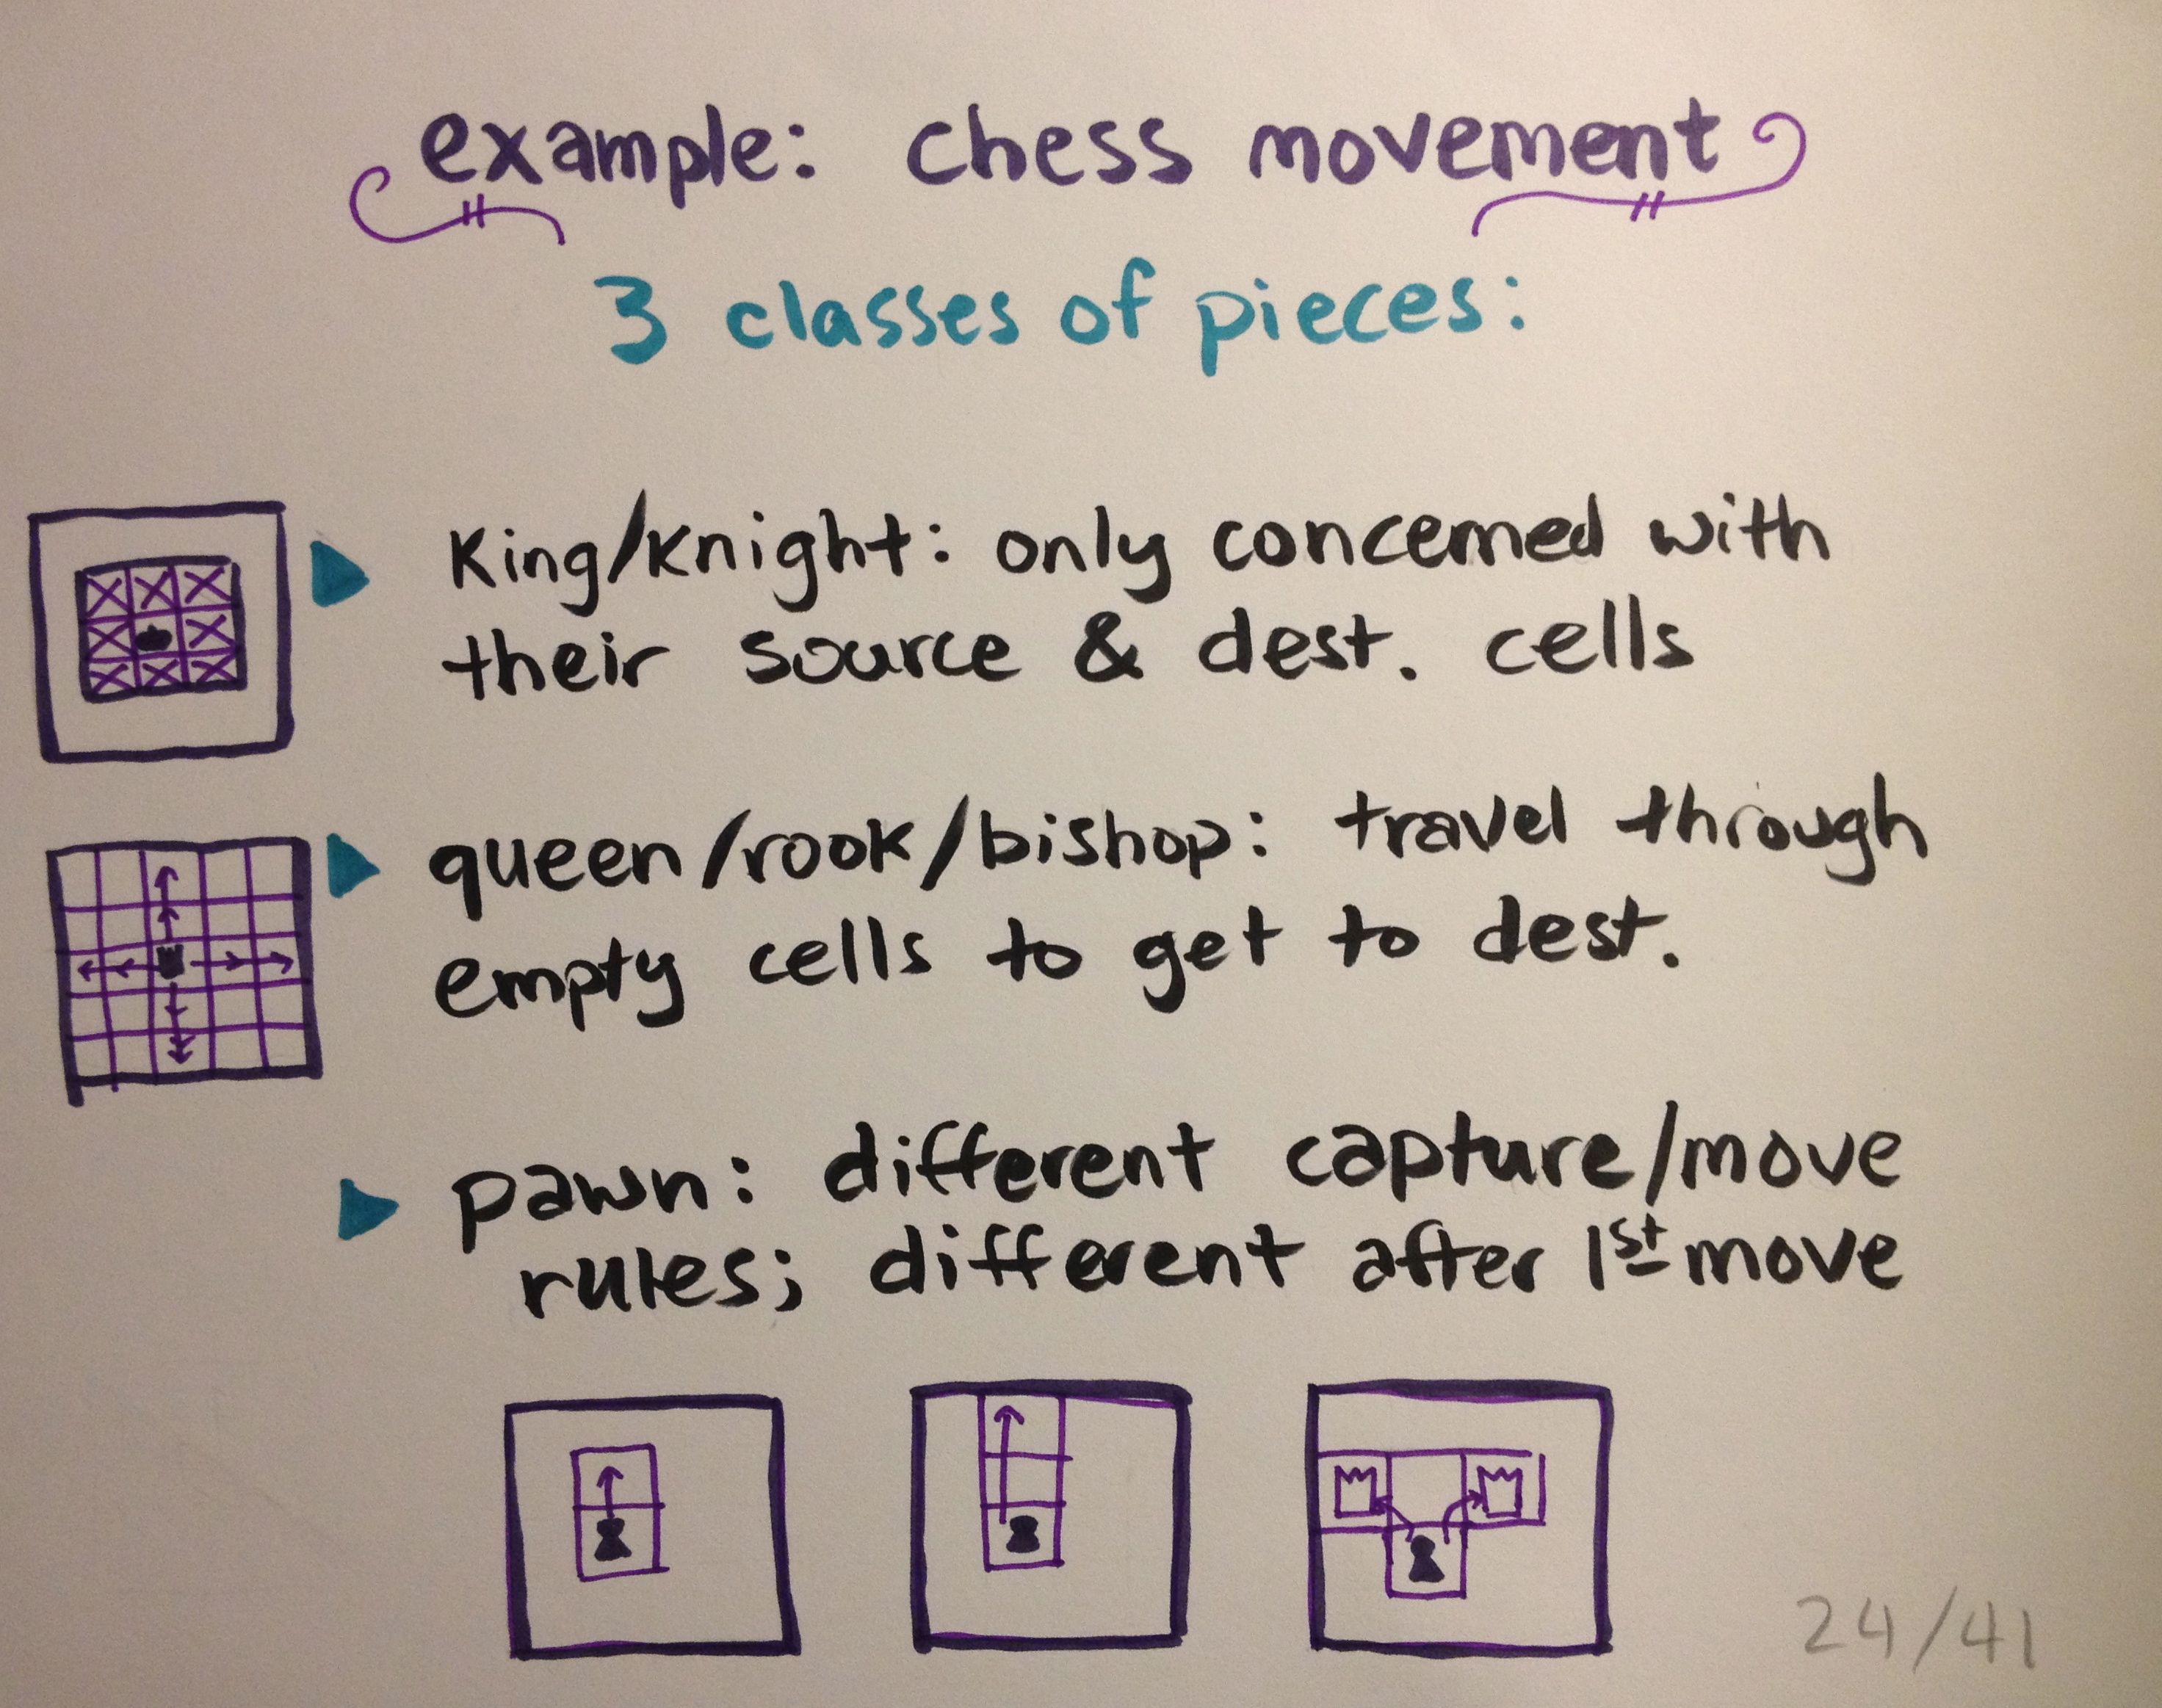 example: chess movement
3 classes of pieces:
King/knight: only concerned with
their source & dest. cells
queen/rook/bishop: travel through
empty cells to get to dest.
pawn: different capture/move
rules; different after 1st move
24/41